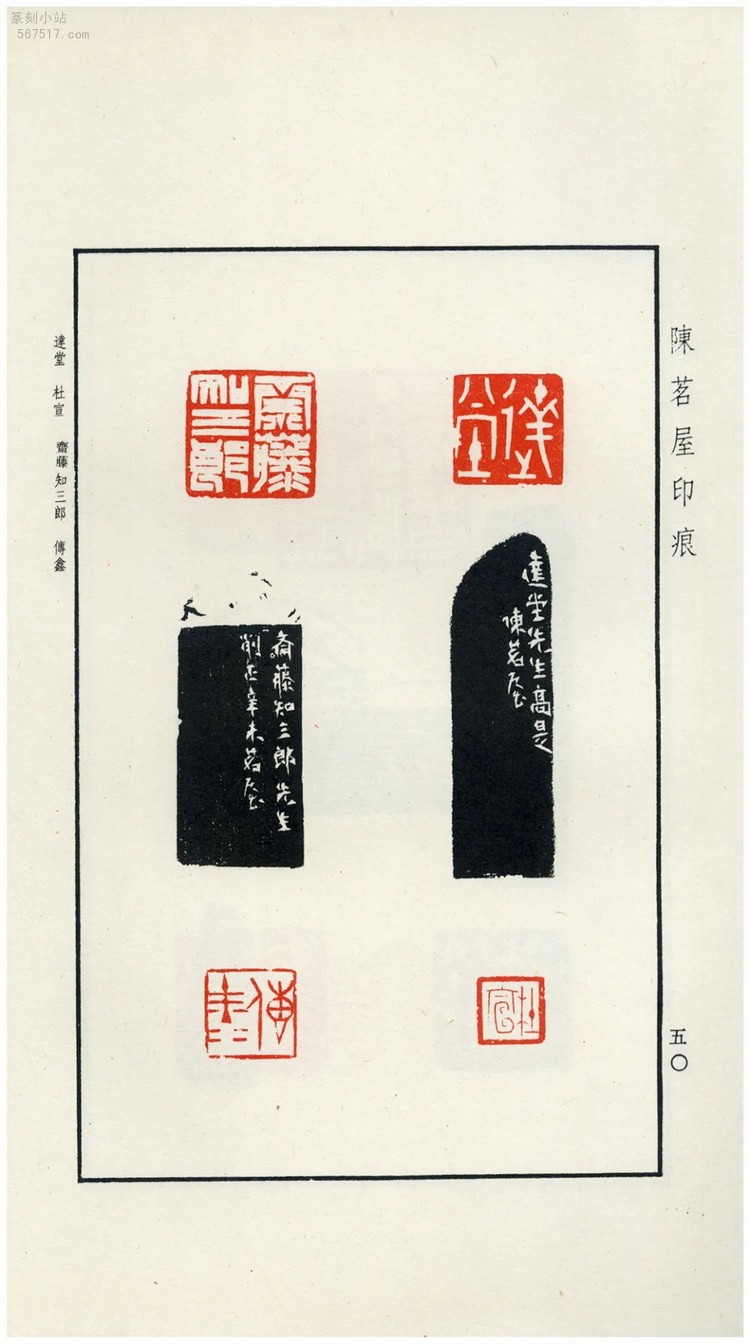 篆刻小站
567517.com
陳茗屋印痕
五〇
達堂
達堂先生高是
陳茗屋
杜宣
斎藤
知三郎
斎藤知三郎先生
削正辛未茗屋
達堂 杜宣 齋藤知三郎 傅鑫